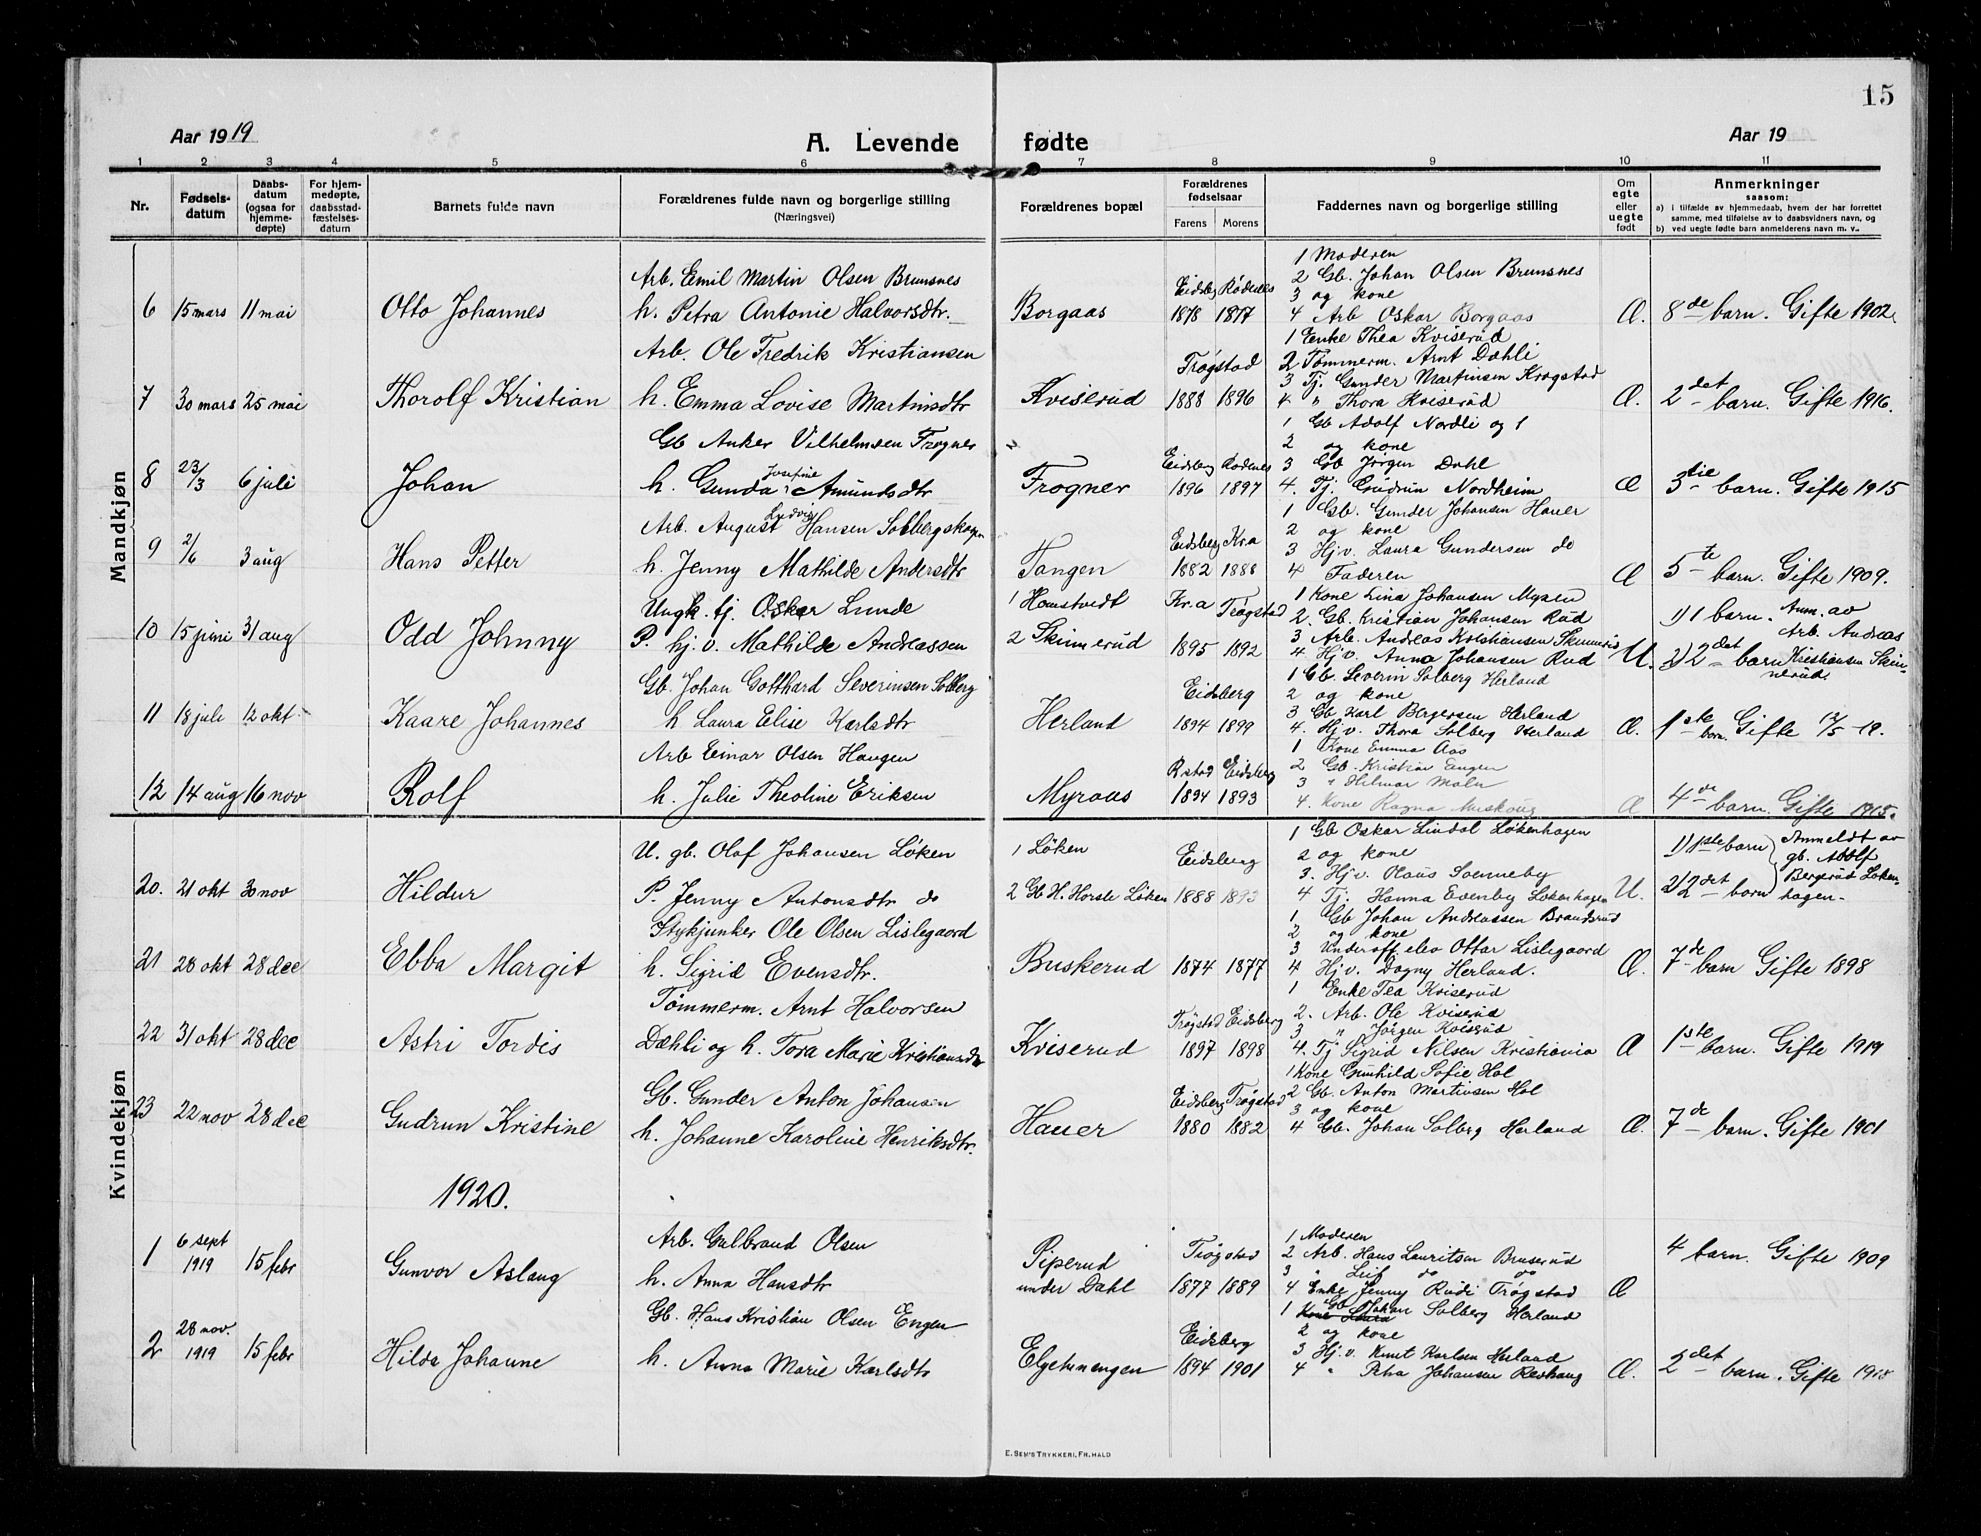 15
Aar 1919
A. Levende fødte
Aar 19
1 2 3 4 5 6 7 8 9 10 11
Nr.
Fødselsdatum
Daabsdatum (ogsaa for hjemmedøpte)
For hjemmedøpte, daabsstadfæstelsesdatum
Barnets fulde navn
Forældrenes fulde navn og borgerlige stilling
(Næringsvei)
Forældrenes bopæl
Forældrenes fødselsaar
Farens Morens
Faddernes navn og borgerlige stilling
Om egte eller uegte født
Anmerkninger
saasom:
a) i tilfælde av hjemmedaab, hvem der har forrettet
samme, med tilføielse av to daabsvidners navn, og
b) ved uegte fødte barn anmelderens navn m. v..
Mandkjøn
6 15 mars 11 mai Otto Johannes
Arb. Emil Martin Olsen Brunsnes
h. Petra Antonie Halvorsdtr.
Borgaas
Eidsbg Rødenes
1878 1877
1 Moderen
2 Gb. Johan Olsen Brunsnes
3 og kone
4 Arb Oskar Borgaas
Æ. 8de barn. Gifte 1902.
7 30 mars 25 mai Thorolf Kristian
Arb. Ole Fredrik Kristiansen
h. Emma Lovise Martinsdtr
Kviserud
Trøgstad
1888 1896
1 Enke Thea Kviserud
2 Tømmerm. Arnt Dæhli
3 Tj. Gunder Martinsen Krogstad
4 " Thora Kviserud
Æ. 2det barn. Gifte 1916.
8 23/3 6 juli Johan
Gb Anker Vilhelmsen Frogner
h. Gunda Josefine Amundsdtr
Frogner
Eidsberg Rødenes
1896 1897
1 Gb Adolf Nordli og 1
2 og kone
3 Gb Jørgen Dahl
4. Tj. Gudrun Nordheim
Æ 3die barn. Gifte 1915
9 2/6 3 aug Hans Petter
Arb. August Ludvig Hansen Solbergskogen
h. Jenny Mathilde Andersdtr
Tangen
Eidsberg Kr.a
1882 1888
1 Gb. Gunder Johansen Hauer
2 og kone
3 Hj.v. Laura Gundersen do
4 Faderen
Æ 5te barn. Gifte 1909.
10 15 juni 31 aug Odd Johnny
Ungk. tj. Oskar Lunde
P. hj.v. Mathilde Andreassen
1 Homstvedt
2 Skinnerud
Kr.a Trøgstad
1895 1892
1 Kone Lina Johansen Mysen
2. Gb. Kristian Johansen Rud
3 Arb. Andreas Kristiansen Skinnerud
4. Hj.v. Anna Johansen Rud
U. 1) 1 barn. Anm. av
Arb. Andreas
2) 2det barn Kristiansen Skinnerud.
11 18 juli 12 okt Kaare Johannes
Gb. Johan Gotthard Severinsen Solberg
h Laura Elise Karlsdtr
Herland
Eidsberg
1894 1899
1 Gb. Severin Solberg Herland
2 og kone
3 Gb Karl Børgersen Herland
4. Hj.v. Thora Solberg Herland
Æ. 1ste barn. Gifte 17/5-19.
12 14 aug 16 nov Rolf
Arb Einar Olsen Haugen
h. Julie Theoline Eriksen
Myraas
R.stad Eidsberg
1894 1893
1 Kone Emma Aas
2 Gb. Kristian Engen
3 " Hilmar Moln
4. Kone Ragna Muskaug
Æ 4de barn. Gifte 1915.
Kvindekjøn
20. 21 okt 30 nov Hildur
U. gb. Olaf Johansen Løken
P. Jenny Antonsdtr do
1 Løken
2 Gb H. Horsle Løken
Eidsberg
1888 1893
1 Gb Oskar Lindal Løkenhagen
2 og kone
3. Hj.v. Olaus Svenneby
4 Tj. Hanna Evenby Løkenhagen
U. 1) 1ste barn
2) 2det barn
Anmeldt av
gb. Adolf
Bergerud Løkenhagen.
21 28 okt 28 dec Ebba Margit
Stykjunker Ole Olsen Lislegaard
h. Sigrid Evensdtr.
Buskerud
1874 1877
1 Gb Johan Andreassen Brandsrud
2 og kone
3 Underoff.elev Ottar Lislegaard
4 Hj.v. Dagny Herland.
Æ. 7de barn Gifte 1898
22 31 okt 28 dec Astri Tordis
Tømmerm. Arnt Halvorsen
Dæhli og h. Tora Marie Kristiansdtr
Kviserud
Trøgstad Eidsberg
1897 1898
1 Enke Tea Kviserud
2. Arb. Ole Kviserud
3 " Jørgen Kviserud
4. Tj Sigrid Nilsen Kristiania
Æ 1ste barn. Gifte 1919
23 22 nov 28 dec Gudrun Kristine
Gb. Gunder Anton Johansen
h. Johanne Karoline Henriksdtr.
Hauer
Eidsberg Trøgstad
1880 1882
1 Kone Gunhild Sofie Hol
2 Gb. Anton Martinsen Hol
3 og kone
4 Gb. Johan Solberg Herland
Æ. 7de barn. Gifte 1901
1920.
1 6 sept 1919 15 febr Gunvor Aslaug
Arb. Gulbrand Olsen
h. Anna Hansdtr
Piperud
under Dahl
Trøgstad
1877 1889
1 Moderen
2 Arb. Hans Lauritsen Bruserud
3 " Leif do do
4 Enke Jenny Rudi Trøgstad
Æ 4 barn. Gifte 1909
2 28 nov. 1919 15 febr Hilda Johanne
Gb. Hans Kristian Olsen Engen
h. Anna Marie Karlsdtr
Elgetunengen
Eidsberg
1894 1901
1 Kone Laura Gb Johan Solberg Herland
2 og kone
3 Hj.v. Knut Karlsen Herland
4 " Petra Johansen Revhaug
Æ. 2det barn. Gifte 1918
E. SEM'S TRYKKERI, FR.HALD